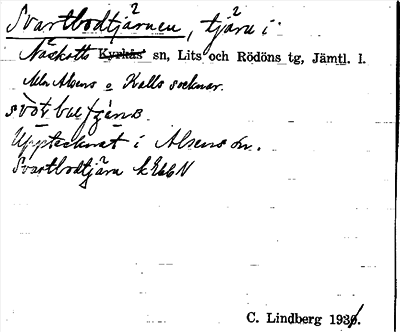 Svartbodtjärnen, tjärn i
Näskotts Kyrkås sn, Lits och Rödöns tg, Jämtl. l.
Alsens o Kalls socknar.
Upptecknat i Alsens sn.
Svartbodtjärn k966N
C. Lindberg 193